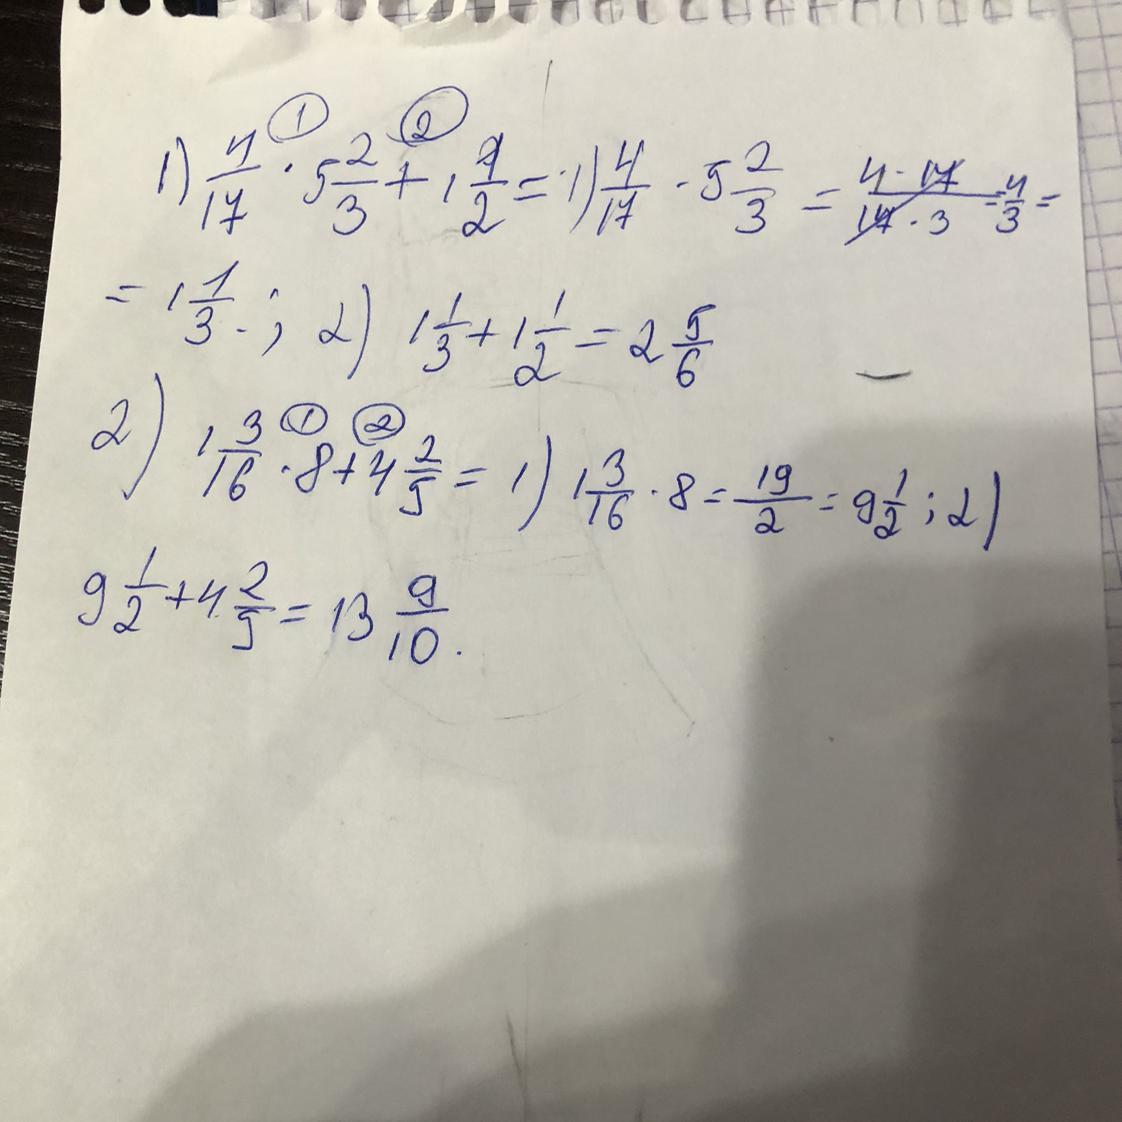 1) 4/17 ① · 5 2/3 ② + 1 1/2 = 1) 4/17 · 5 2/3 = 4·17/17·3 = 4/3 =
= 1 1/3 . ; 2) 1 1/3 + 1 1/2 = 2 5/6
2) 1 3/16 ① · 8 ② + 4 2/5 = 1) 1 3/16 · 8 = 19/2 = 9 1/2 ; 2)
9 1/2 + 4 2/5 = 13 9/10 .